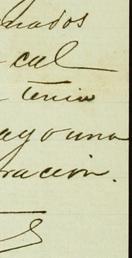 mados
cal
tenia
ayouna
racion.